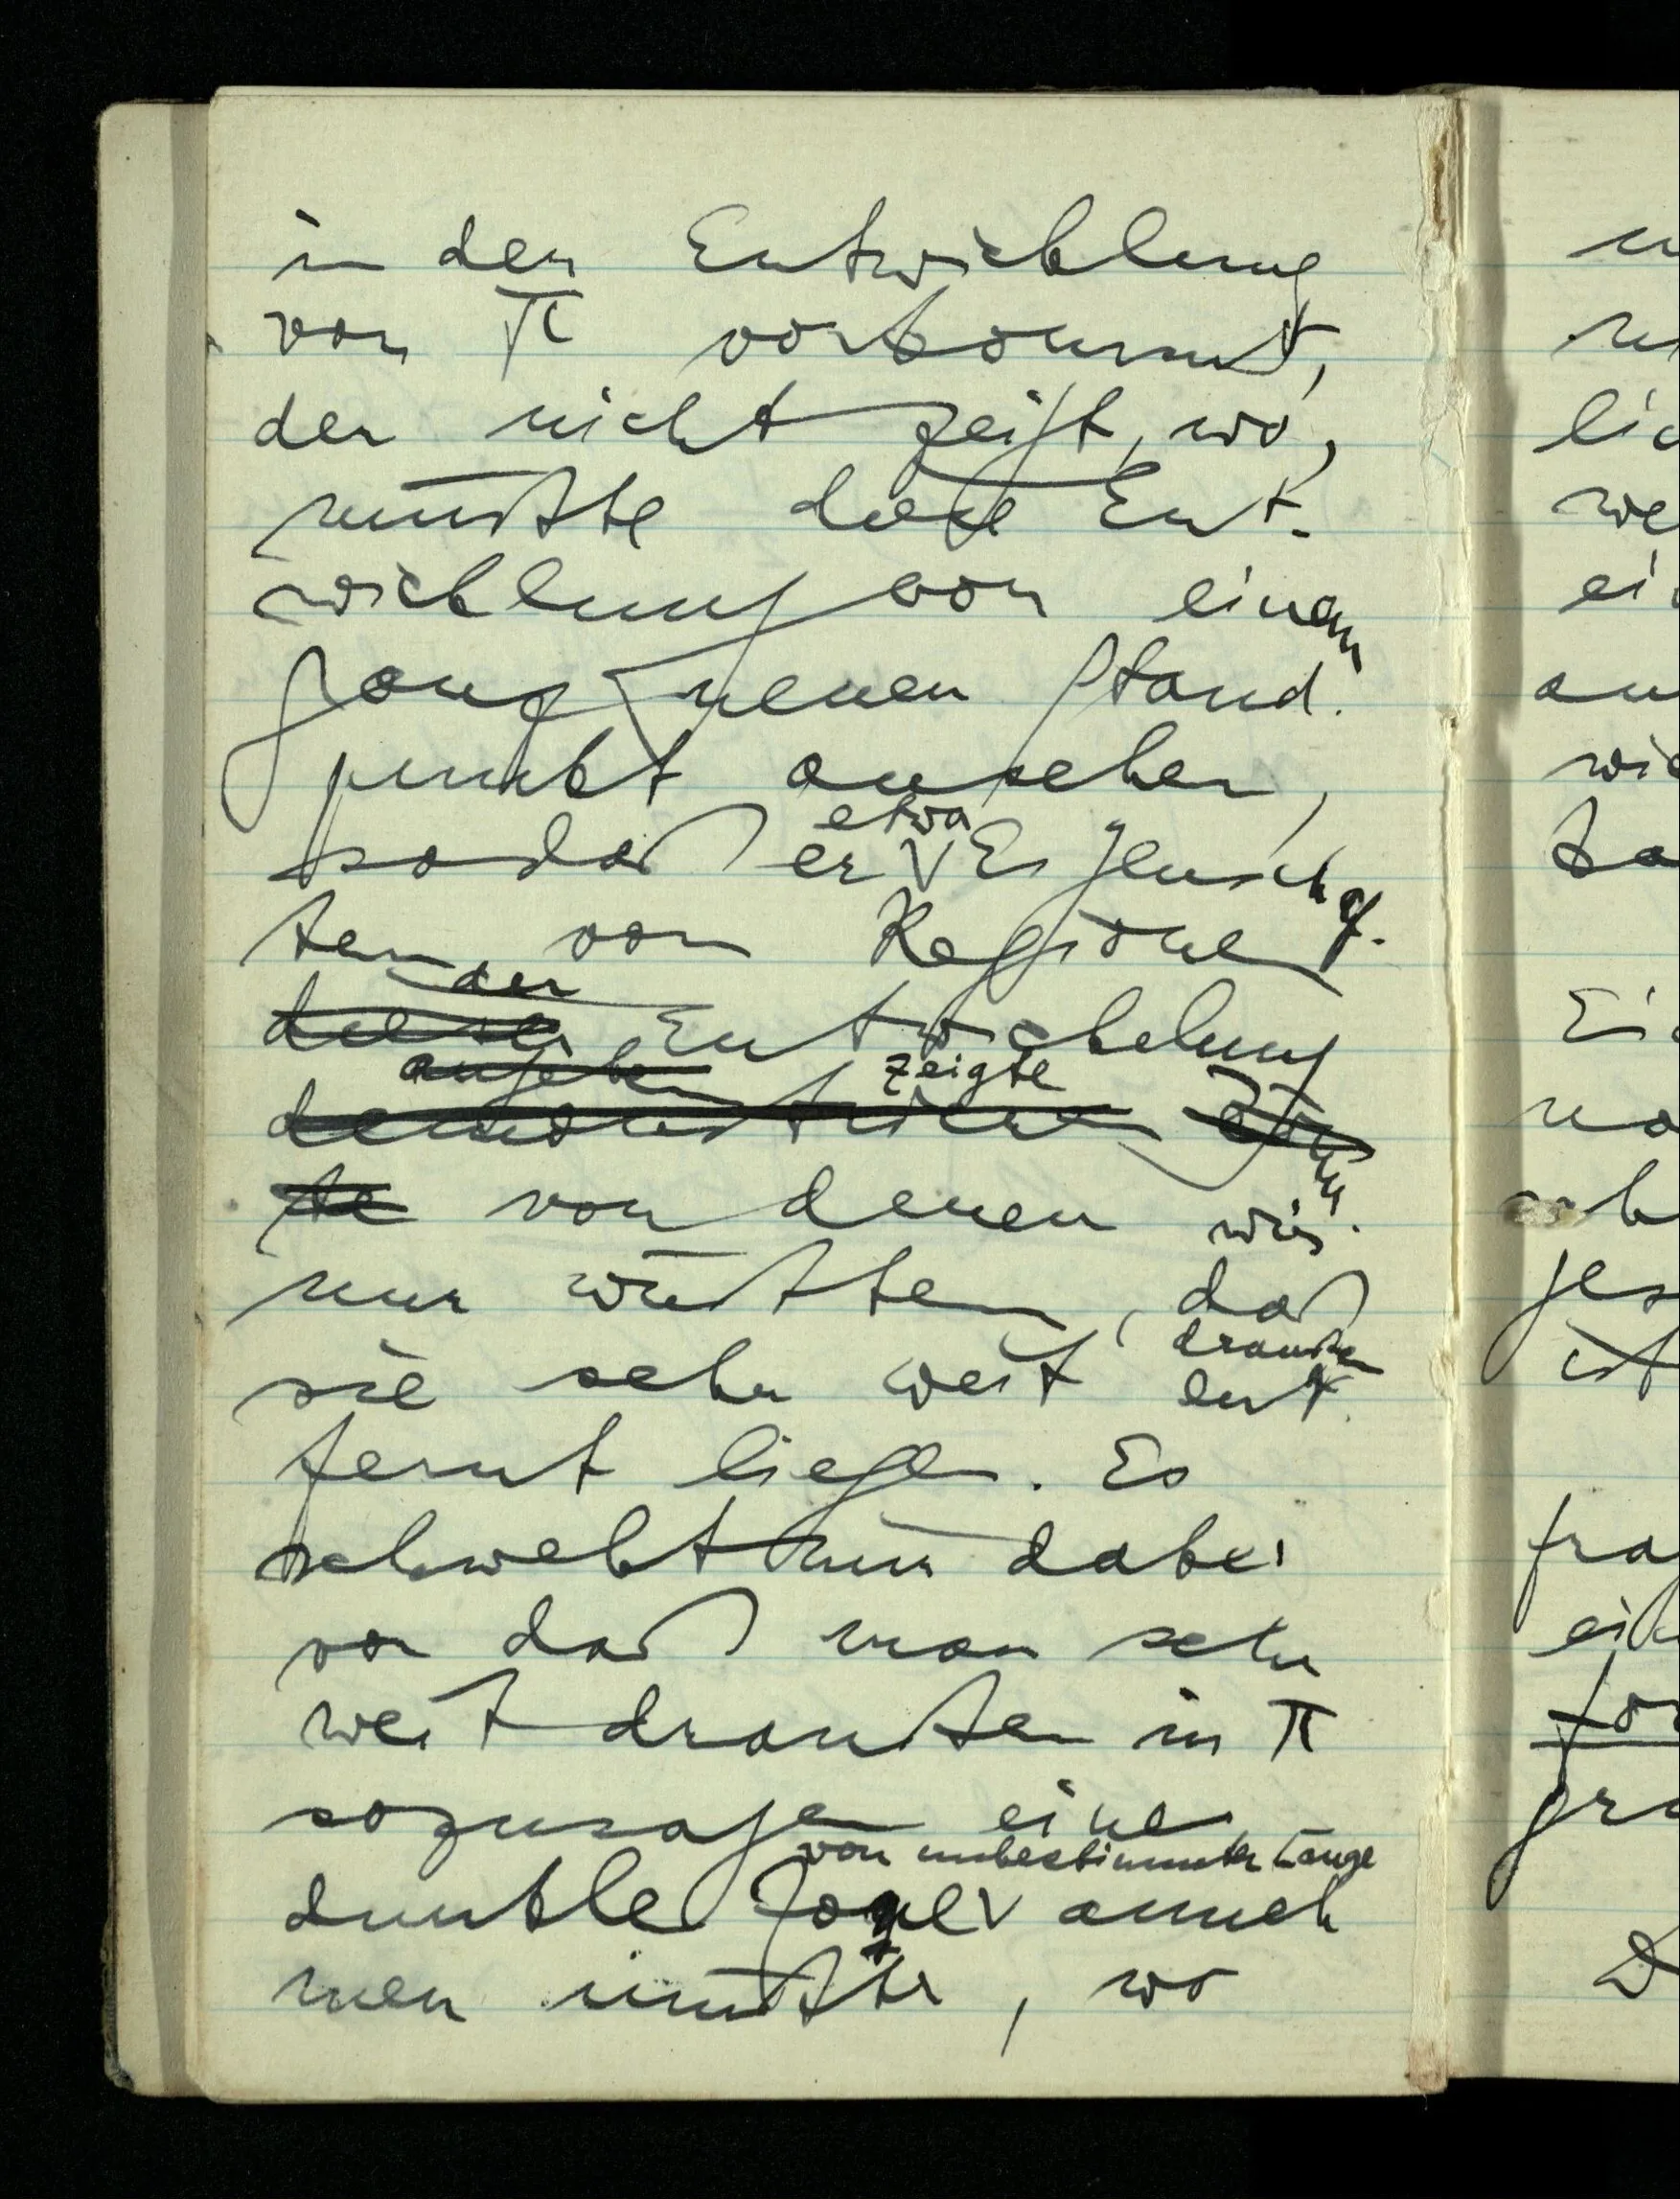 in der Entwicklung
von π vorkommt,
der nicht zeigt, wo,
müßte diese Ent-
wicklung von einem
ganz neuen Stand-
punkt ansehen,
sodaß er etwa Eigenschaf-
ten von Regionen
dieser der Entwickelung
demonstrieren angeben zeigte
te von denen wir
nur wüßten, daß
sie sehr weit draußen ent
fernt liegen. Es
schwebt mir dabei
vor daß man sehr
weit draußen in π
sozusagen eine
dunkle Zone von unbestimmter Länge anneh
men müßte, wo